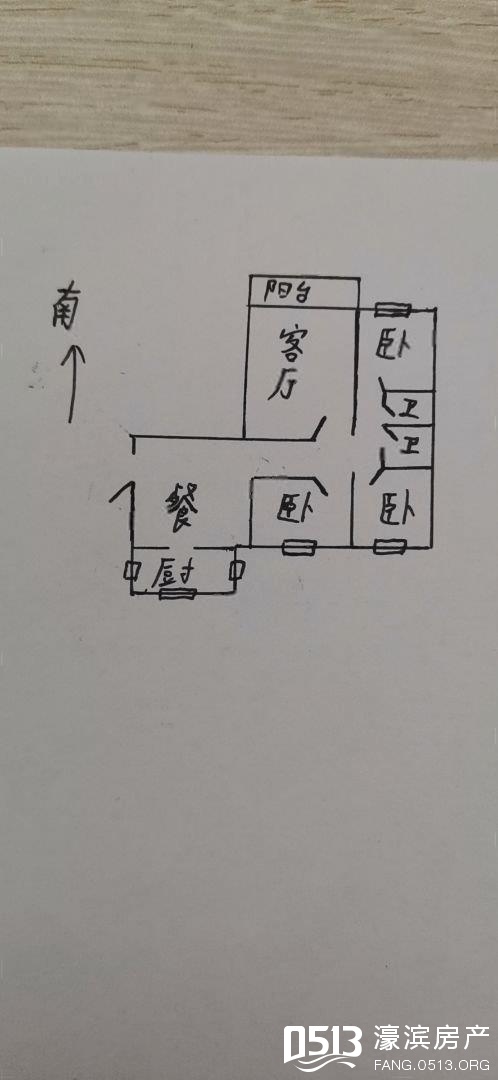 阳台
南
客厅
卧
卫
卫
餐
卧
卧
厨
0513 濠滨房产
FANG.0513.ORG